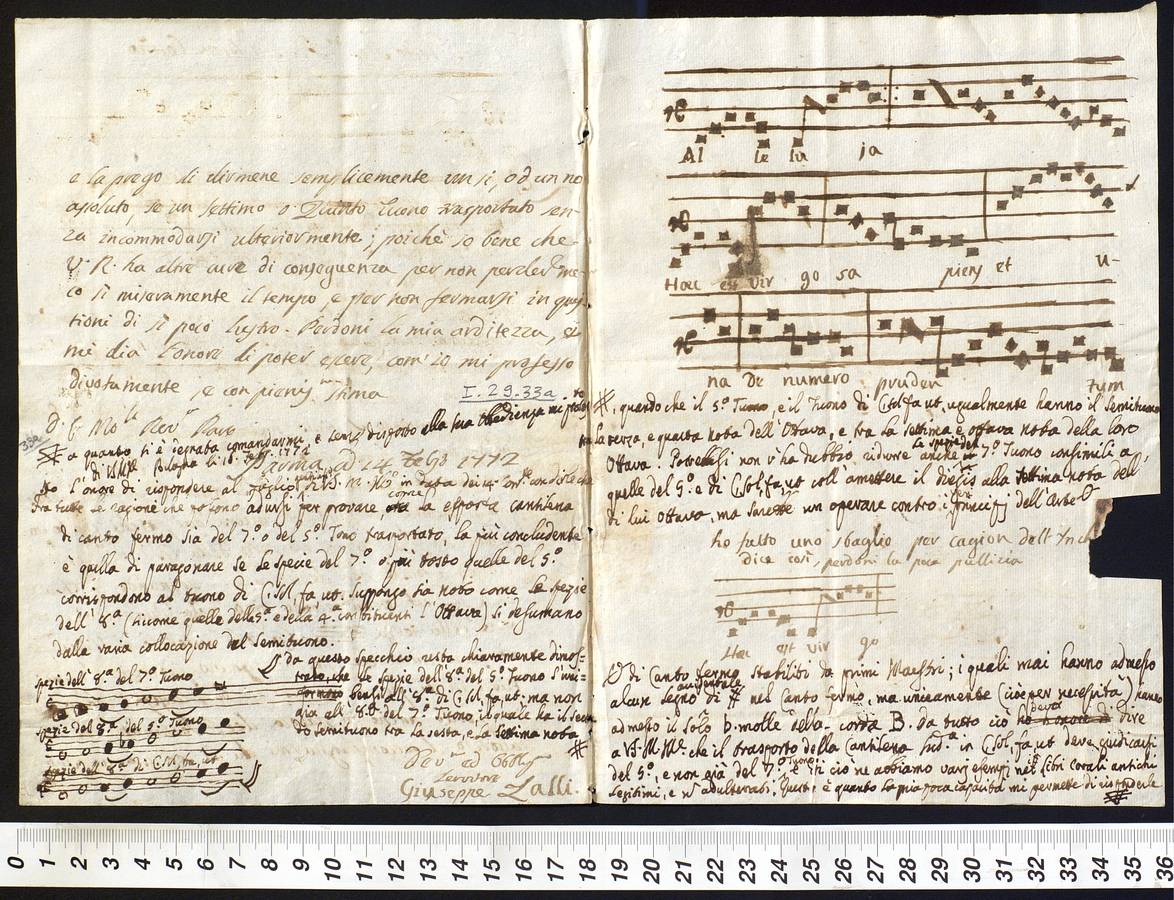 e la prego di dirmene semplicemente un si, od un no
assoluto, se un settimo o Quinto Tuono trasportato sen-
za incommodarsi ulteriormente; poichè so bene che
V. R. ha altre cure di conseguenza per non perder me-
co sì miseramente il tempo, e per non fermarsi in ques
tioni di sì poco lustro. Perdoni la mia arditezza, e
mi dia l'onore di poter essere, com'io mi professo
divotamente, e con pieniss.ma stima
I. 29. 33a
a quanto si è degnata comandarmi, e sono disposto alla sua obbedienza
Bologna li
Parma ad 14 1772
l'onore di rispondere al foglio di V. in data dei
fra tutte le ragioni che possono addursi per provare, come la esposta cantilena
di canto fermo sia del 7.º o del 5.º Tono trasportato, la più concludente
è quella di paragonare se le specie del 7.º o più tosto quelle del 5.º
corrispondono al tuono di C sol, fa, ut. Suppongo sia noto come le spezie
dell'8.ª (siccome quelle della 5.ª e della 4.ª constituenti l'Ottava) si desumano
dalla varia collocazione del Semituono.
spezie dell'8.ª del 7.º Tuono
spezie dell'8.ª del 5.º Tuono
spezie dell'8.ª di C sol, fa, ut
da questo specchio resta chiaramente dimos-
trato, che le spezie dell'8.ª del 5.º Tuono
dell'8.ª di C sol, fa, ut: ma non
già all'8.ª del 7.º Tuono, il quale ha il secon
do semituono tra la sesta, e la settima nota
Dev.mo ed Obblig.
Servitore
Giuseppe Zalli.
Al le lu ja
Haec est Vir go sa piens et u-
na de numero pruden tum
quando che il 5.º Tuono, e il Tuono di C sol, fa, ut, ugualmente hanno il semituono
la terza, e quarta nota dell'Ottava, e tra la settima e ottava nota della loro
Ottava. Potrebbesi non v'ha dubbio ridurre anche le spezie del 7.º Tuono consimili a
quelle del 5.º e di C sol, fa, ut coll'ammettere il diesis alla settima nota del
di lui Ottava, ma sarebbe un operare contro i principj dell'Arte
ho fatto uno sbaglio per cagion dell'
dice così, perdoni la poca pulizia
Haec est Vir go
di Canto fermo stabiliti da primi Maestri; i quali mai hanno admesso
alcun segno di # nel Canto fermo, ma unicamente (cioè per necessità) hanno
admesso il solo b. molle nella corda B. da tutto ciò devo dire
a V. che il trasporto della Cantilena in C sol, fa, ut deve giudicarsi
del 5.º, e non già del 7.º Tuono, e di ciò ne abbiamo varj esempj nei libri corali antichi
legitimi, e non adulterati. Questo è quanto la mia poca capacità mi permette di risponderle
0 1 2 3 4 5 6 7 8 9 10 11 12 13 14 15 16 17 18 19 20 21 22 23 24 25 26 27 28 29 30 31 32 33 34 35 36